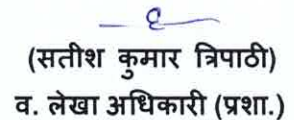 (सतीश कुमार त्रिपाठी)
व. लेखा अधिकारी (प्रशा.)